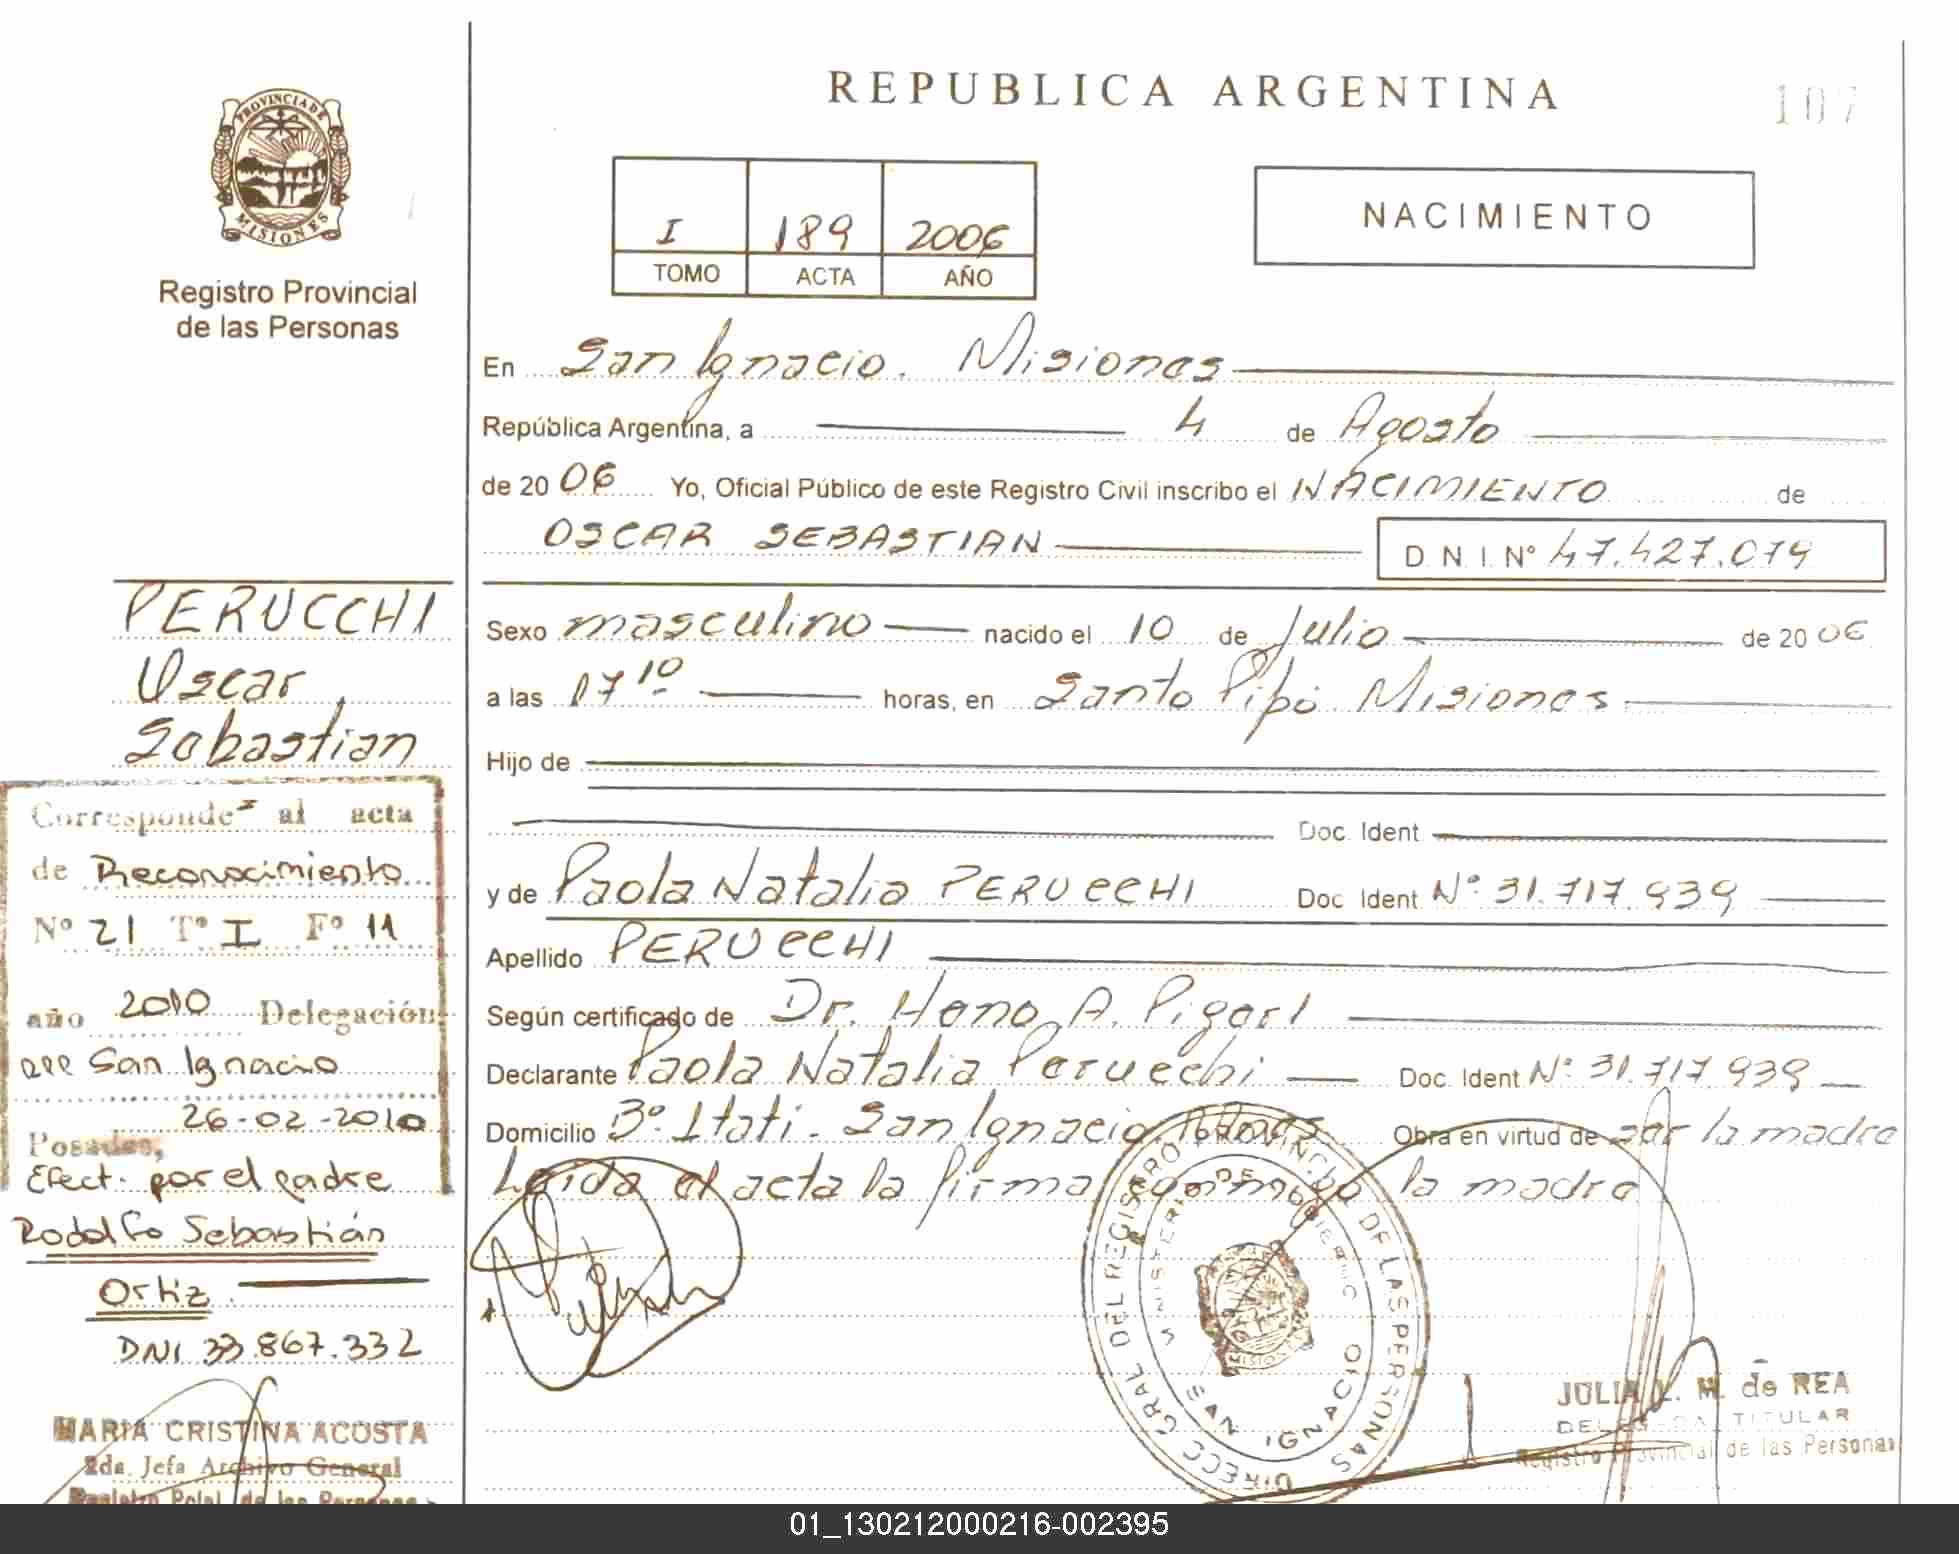 REPUBLICA ARGENTINA
107
PROVINCIA DE
MISIONES
Registro Provincial
de las Personas
I 189 2006
TOMO ACTA AÑO
NACIMIENTO
En San Ignacio. Misiones
República Argentina, a 4 de Agosto
de 20 06 Yo, Oficial Público de este Registro Civil inscribo el NACIMIENTO de
OSCAR SEBASTIAN
D. N. I. Nº 47.427.079
Sexo masculino nacido el 10 de Julio de 20 06
a las 17 10 horas, en Santo Pipó Misiones
Hijo de
Doc. Ident
y de Paola Natalia PERUCCHI Doc Ident Nº 31.717.939
Apellido PERUCCHI
Según certificado de Dr. A.
Declarante Paola Natalia Perucchi Doc. Ident Nº 31.717 939
Domicilio Bº Itatí. San Ignacio Obra en virtud de ser la madre
Leída el acta la firma conmigo la madre
PERUCCHI
Oscar
Sebastian
Corresponde al acta
de Reconocimiento
Nº 21 Tº I Fº 11
año 2010 Delegación
San Ignacio
26-02-2010
Posadas,
Efect. por el padre
Rodolfo Sebastián
Ortiz.
DNI 33.867.332
MARIA CRISTINA ACOSTA
2da. Jefa Archivo General
DIRECC GRAL DEL REGISTRO PROVINCIAL DE LAS PERSONAS
MINISTERIO DE GOBIERNO
SAN IGNACIO
JULIA L. M. de REA
DELEGADA TITULAR
Registro Provincial de las Personas
01_130212000216-002395